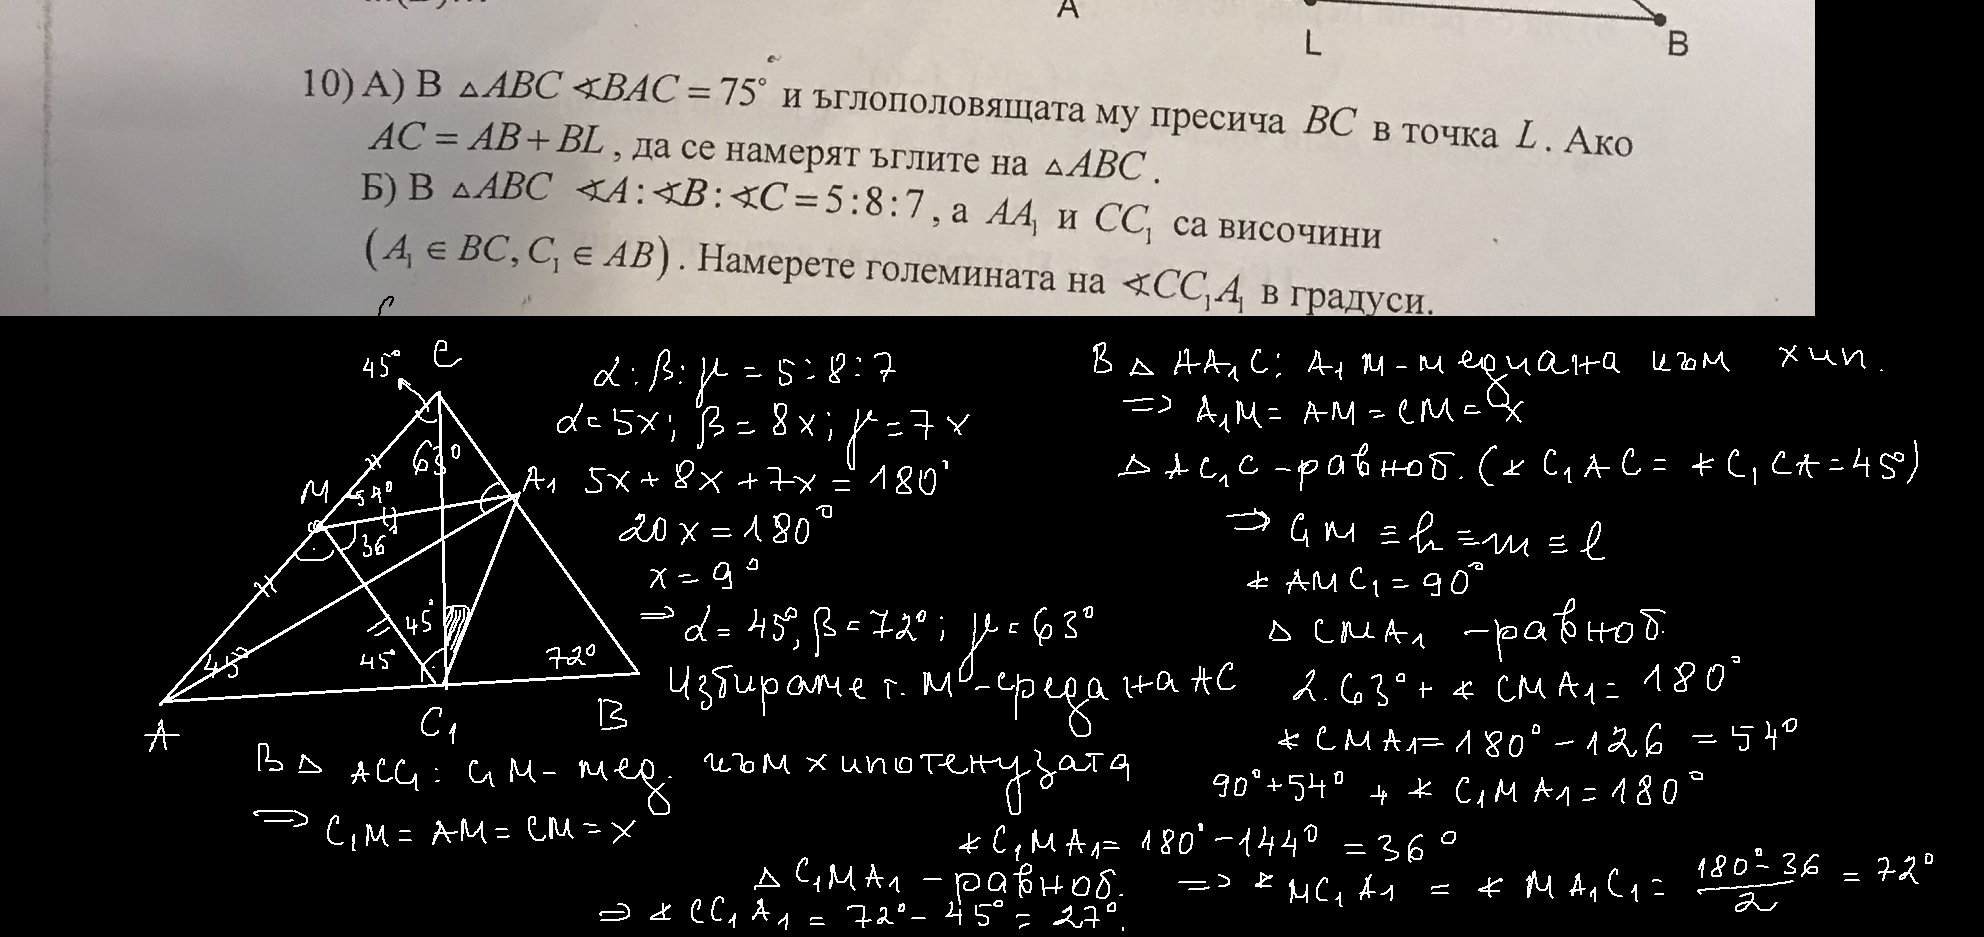 A
L
B
10) А) В △ABC ∢BAC = 75° и ъглополовящата му пресича BC в точка L. Ако
AC = AB + BL, да се намерят ъглите на △ABC.
Б) В △ABC ∢A:∢B:∢C = 5:8:7, а AA₁ и CC₁ са височини
(A₁ ∈ BC, C₁ ∈ AB). Намерете големината на ∢CC₁A₁ в градуси.
45°
C
63°
M
54°
36°
A₁
45°
45°
45°
72°
A
C₁
B
α:β:γ = 5:8:7
α=5x; β=8x; γ=7x
5x+8x+7x=180°
20x=180°
x=9°
⇒ α=45°, β=72°; γ=63°
Избираме т. M-среда на AC
В △ ACC₁: C₁M- мед. към хипотенузата
⇒ C₁M = AM = CM = x
В △ AA₁C: A₁M-медиана към хип.
⇒ A₁M = AM = CM = x
△ AC₁C-равноб. (∢ C₁AC = ∢ C₁CA = 45°)
⇒ C₁M ≡ h ≡ m ≡ l
∢ AMC₁ = 90°
△ CMA₁ -равноб.
2.63° + ∢ CMA₁ = 180°
∢ CMA₁ = 180° - 126 = 54°
90°+54° + ∢ C₁MA₁ = 180°
∢ C₁MA₁ = 180° - 144° = 36°
△ C₁MA₁ -равноб. ⇒ ∢ MC₁A₁ = ∢ MA₁C₁ = (180° - 36)/2 = 72°
⇒ ∢ CC₁A₁ = 72° - 45° = 27°.